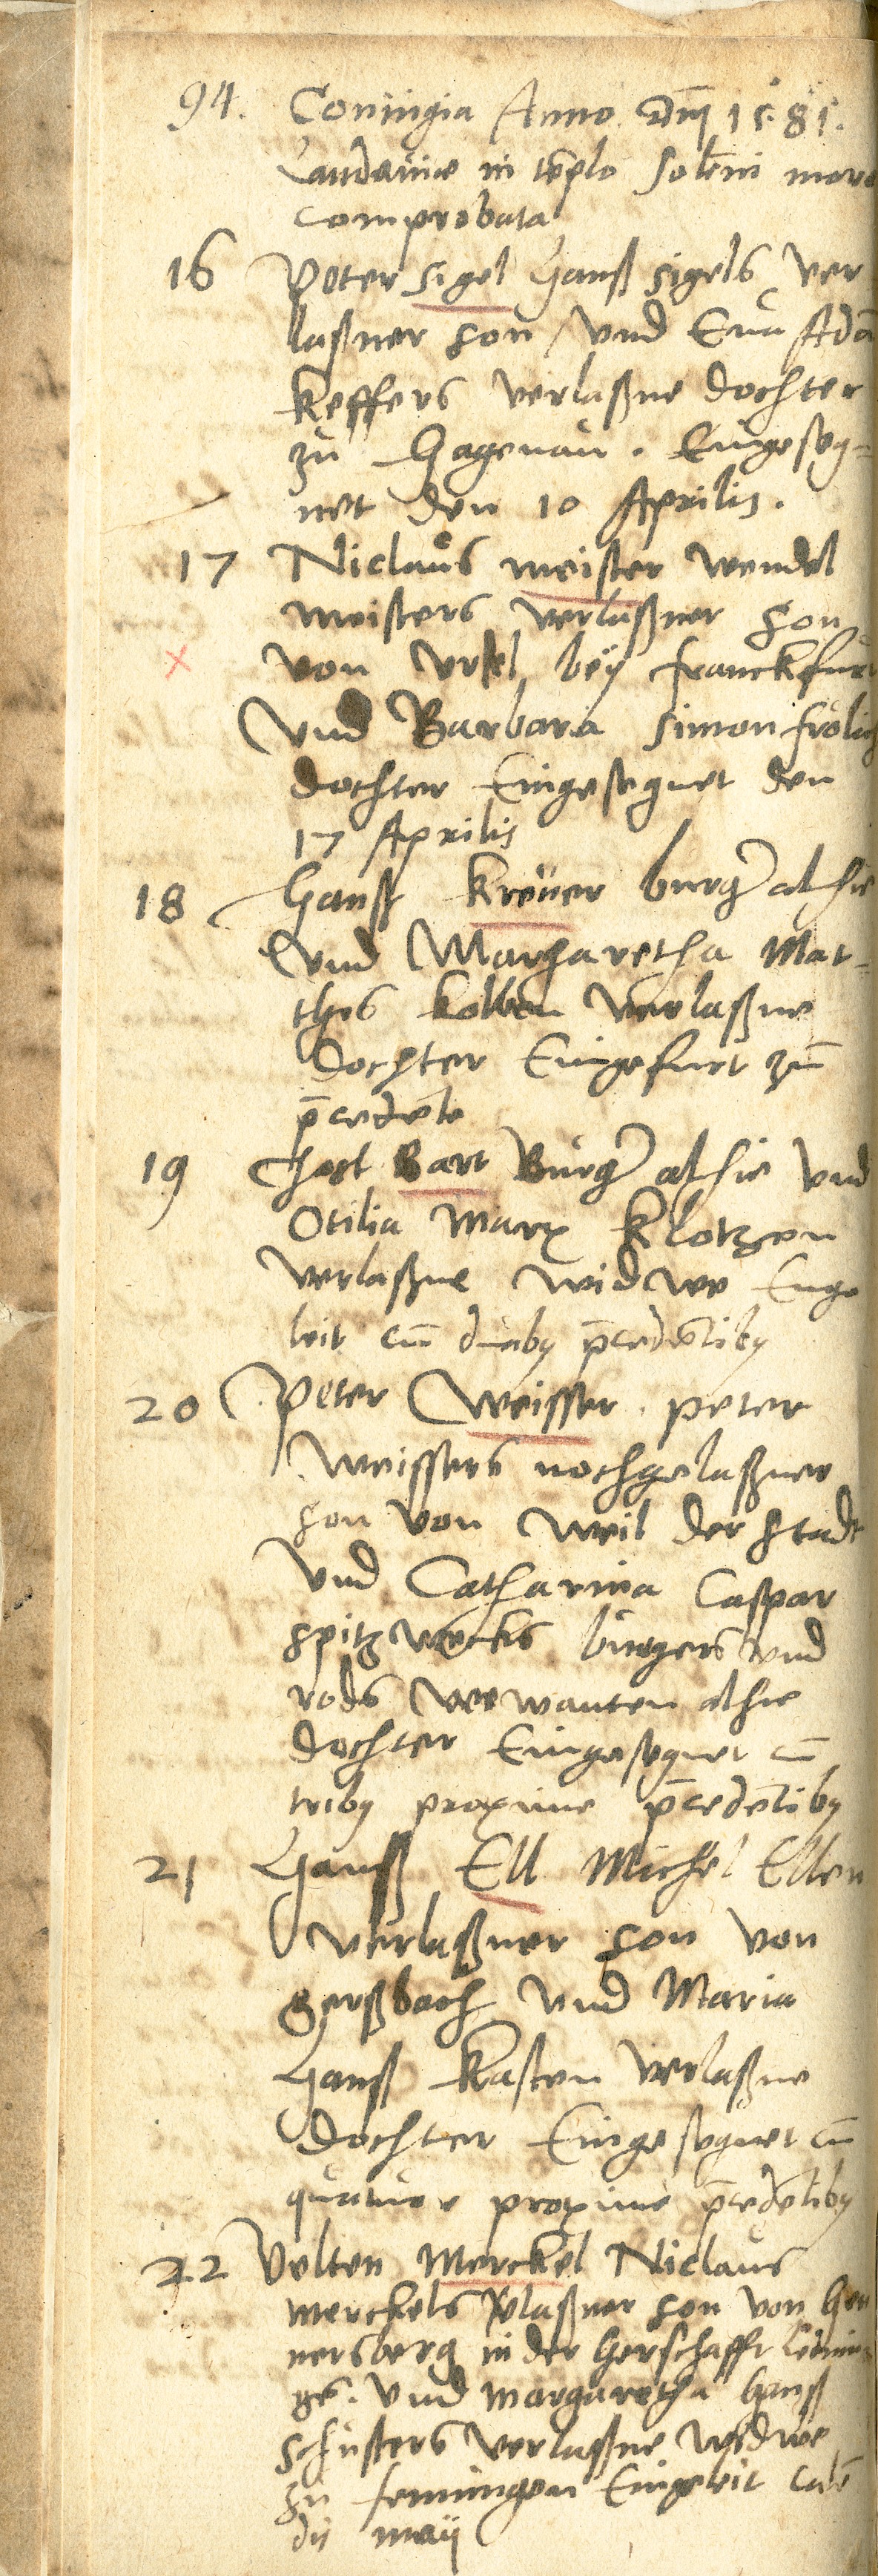 94. Coniugia Anno Dni 1581.
Landauiae in teplo soleni more
comprobata
16 Peter Sigel Hanß Sigels ver
laßner son / vnd Eua Ada
Keffers verlaßne dochter
zu Hagenau. Eingeseg=
net den 10 Aprilis.
17 Niclaus meister wendel
meisters verlaßner son
von Vrsel beÿ franckfur
vnd Barbara Simon frölich
dochter Eingesegnet den
17 Aprilis
18 Hanß Kreuer burger alhie
vnd Margaretha Mat=
thes Kolben verlaßne
dochter Eingefurt
pcedete
19 Jost Bart Burger alhie vnd
Otilia Marx Klotzen
verlaßne widwe Einge
leit cu duaby pcedetiby
20 Peter Weisser. peter
Weissers nochgelaßner
son von Weil der Stadt
vnd Catharina Caspar
Spitzwecks burgers vnd
rods verwanten alhie
dochter Eingesegnet cu
triby proxime pcedetiby
21 Hanß Ell Michel Ellen
verlaßner son von
gerßbach vnd Maria
Hanß Kasten verlaßne
dochter Eingesegnet cu
quatuor proxime pcedetiby
22 Velten Merckel Niclaus
Merckels vlaßner son von
nersberg in der Herschafft
ge. vnd Margaretha Hanß
Schusters verlaßne widwe
zu Eingeleit
dij maij